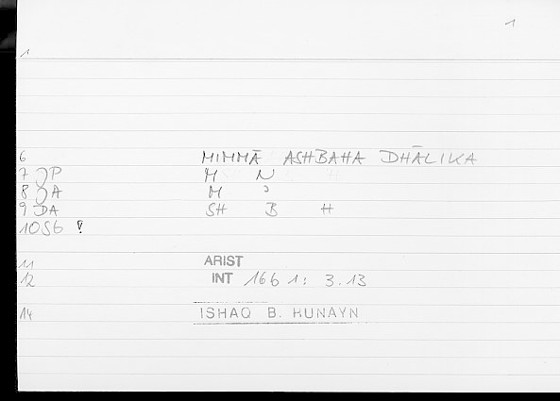 1
1
6 MIMMĀ ASHBAHA DHĀLIKA
7 JP M N
8 JA M ʾ
9 DA SH B H
10 S6 !
11 ARIST
12 INT 166 1: 3.13
14 ISHAQ B. HUNAYN